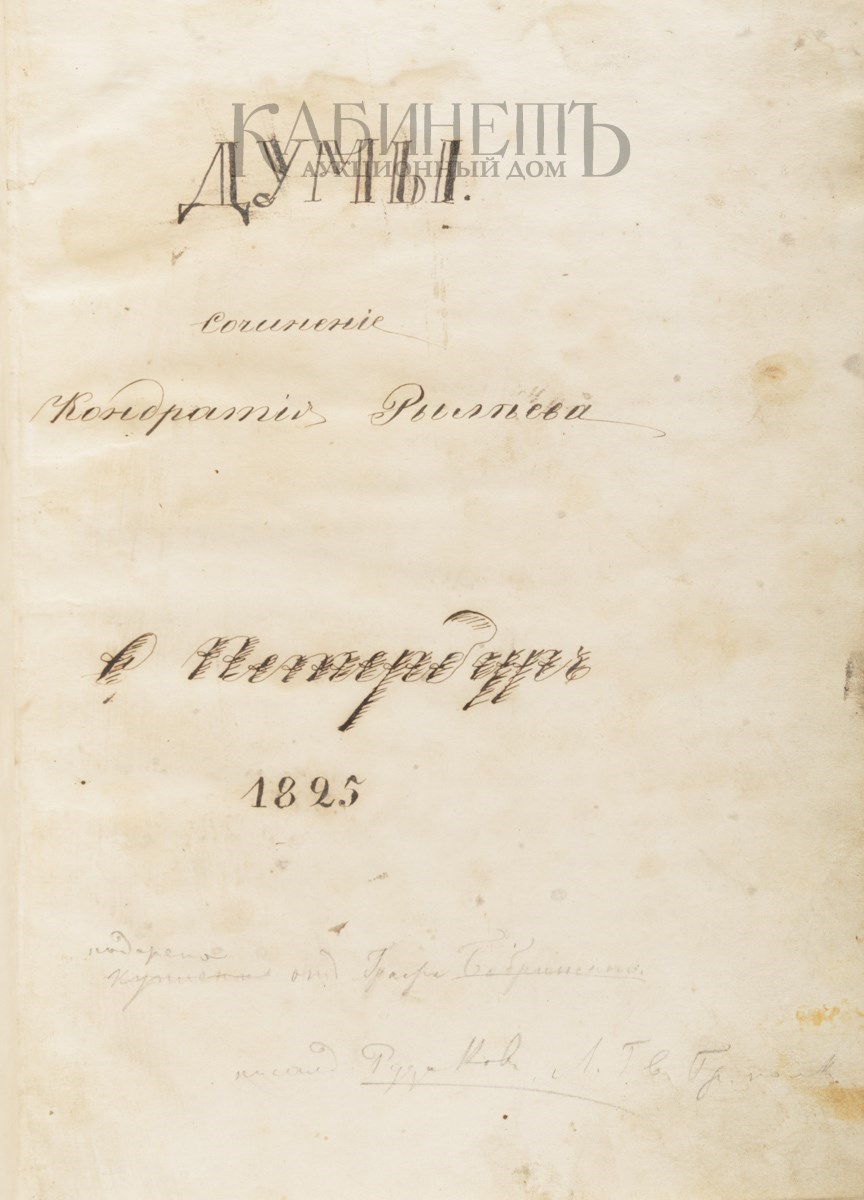 КАБИНЕТЪ
АУКЦИОННЫЙ ДОМ
ДУМЫ.
сочиненіе
Кондратія Рылѣева
в Петербургѣ
1825
подарено
куплена отъ Графа Бобринскаго.
писалъ Л. Гв. Гр. полка